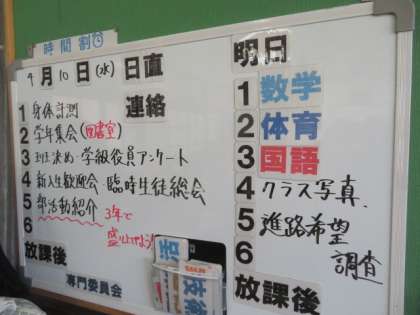 時間割
4月10日(水)日直
連絡
1 身体計測
2 学年集会(図書室)
3 班決め・学級役員アンケート
4 新入生歓迎会・臨時生徒総会
5 部活動紹介
3年で
盛り上げよう
6
放課後
専門委員会
明日
1 数学
2 体育
3 国語
4 クラス写真
5 進路希望
調査
6
放課後
技術